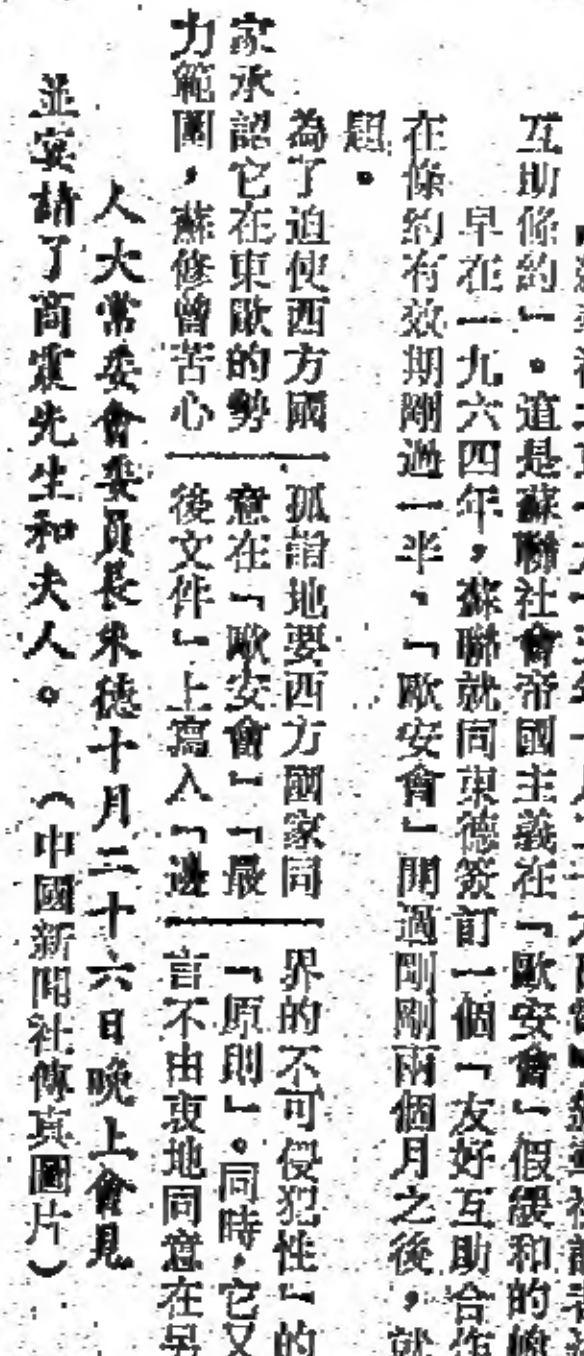 互助條約」。這是蘇聯社會帝國主義在「歐安會」假緩和的幌
早在一九六四年，蘇聯就同東德簽訂一個「友好互助合作
在條約有效期剛過一半，「歐安會」開過剛剛兩個月之後，就
題。
為了迫使西方國
家承認它在東歐的勢
力範圍，蘇修曾苦心
孤詣地要西方國家同
意在「歐安會」「最
後文件」上寫入「邊
界的不可侵犯性」的
「原則」。同時，它又
言不由衷地同意在另
人大常委會委員長朱德十月二十六日晚上會見
並宴請了商震先生和夫人。（中國新聞社傳真圖片）